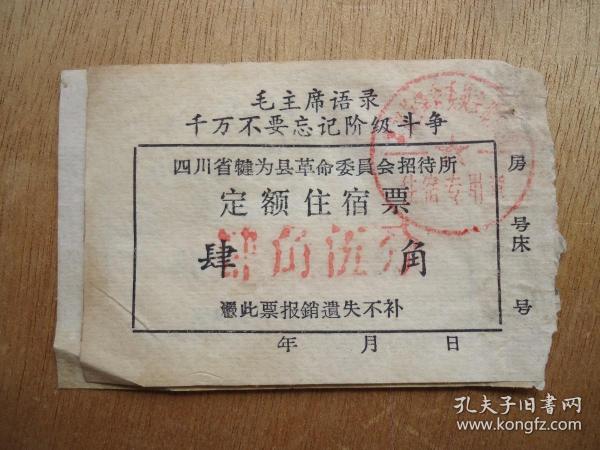 毛主席语录
千万不要忘记阶级斗争
四川省犍为县革命委員会招待所
定额住宿票
肆 角
肆角伍分
凴此票报銷遺失不补
年 月 日
房
号
床
号
住宿专用章
孔夫子旧書网
www.kongfz.com